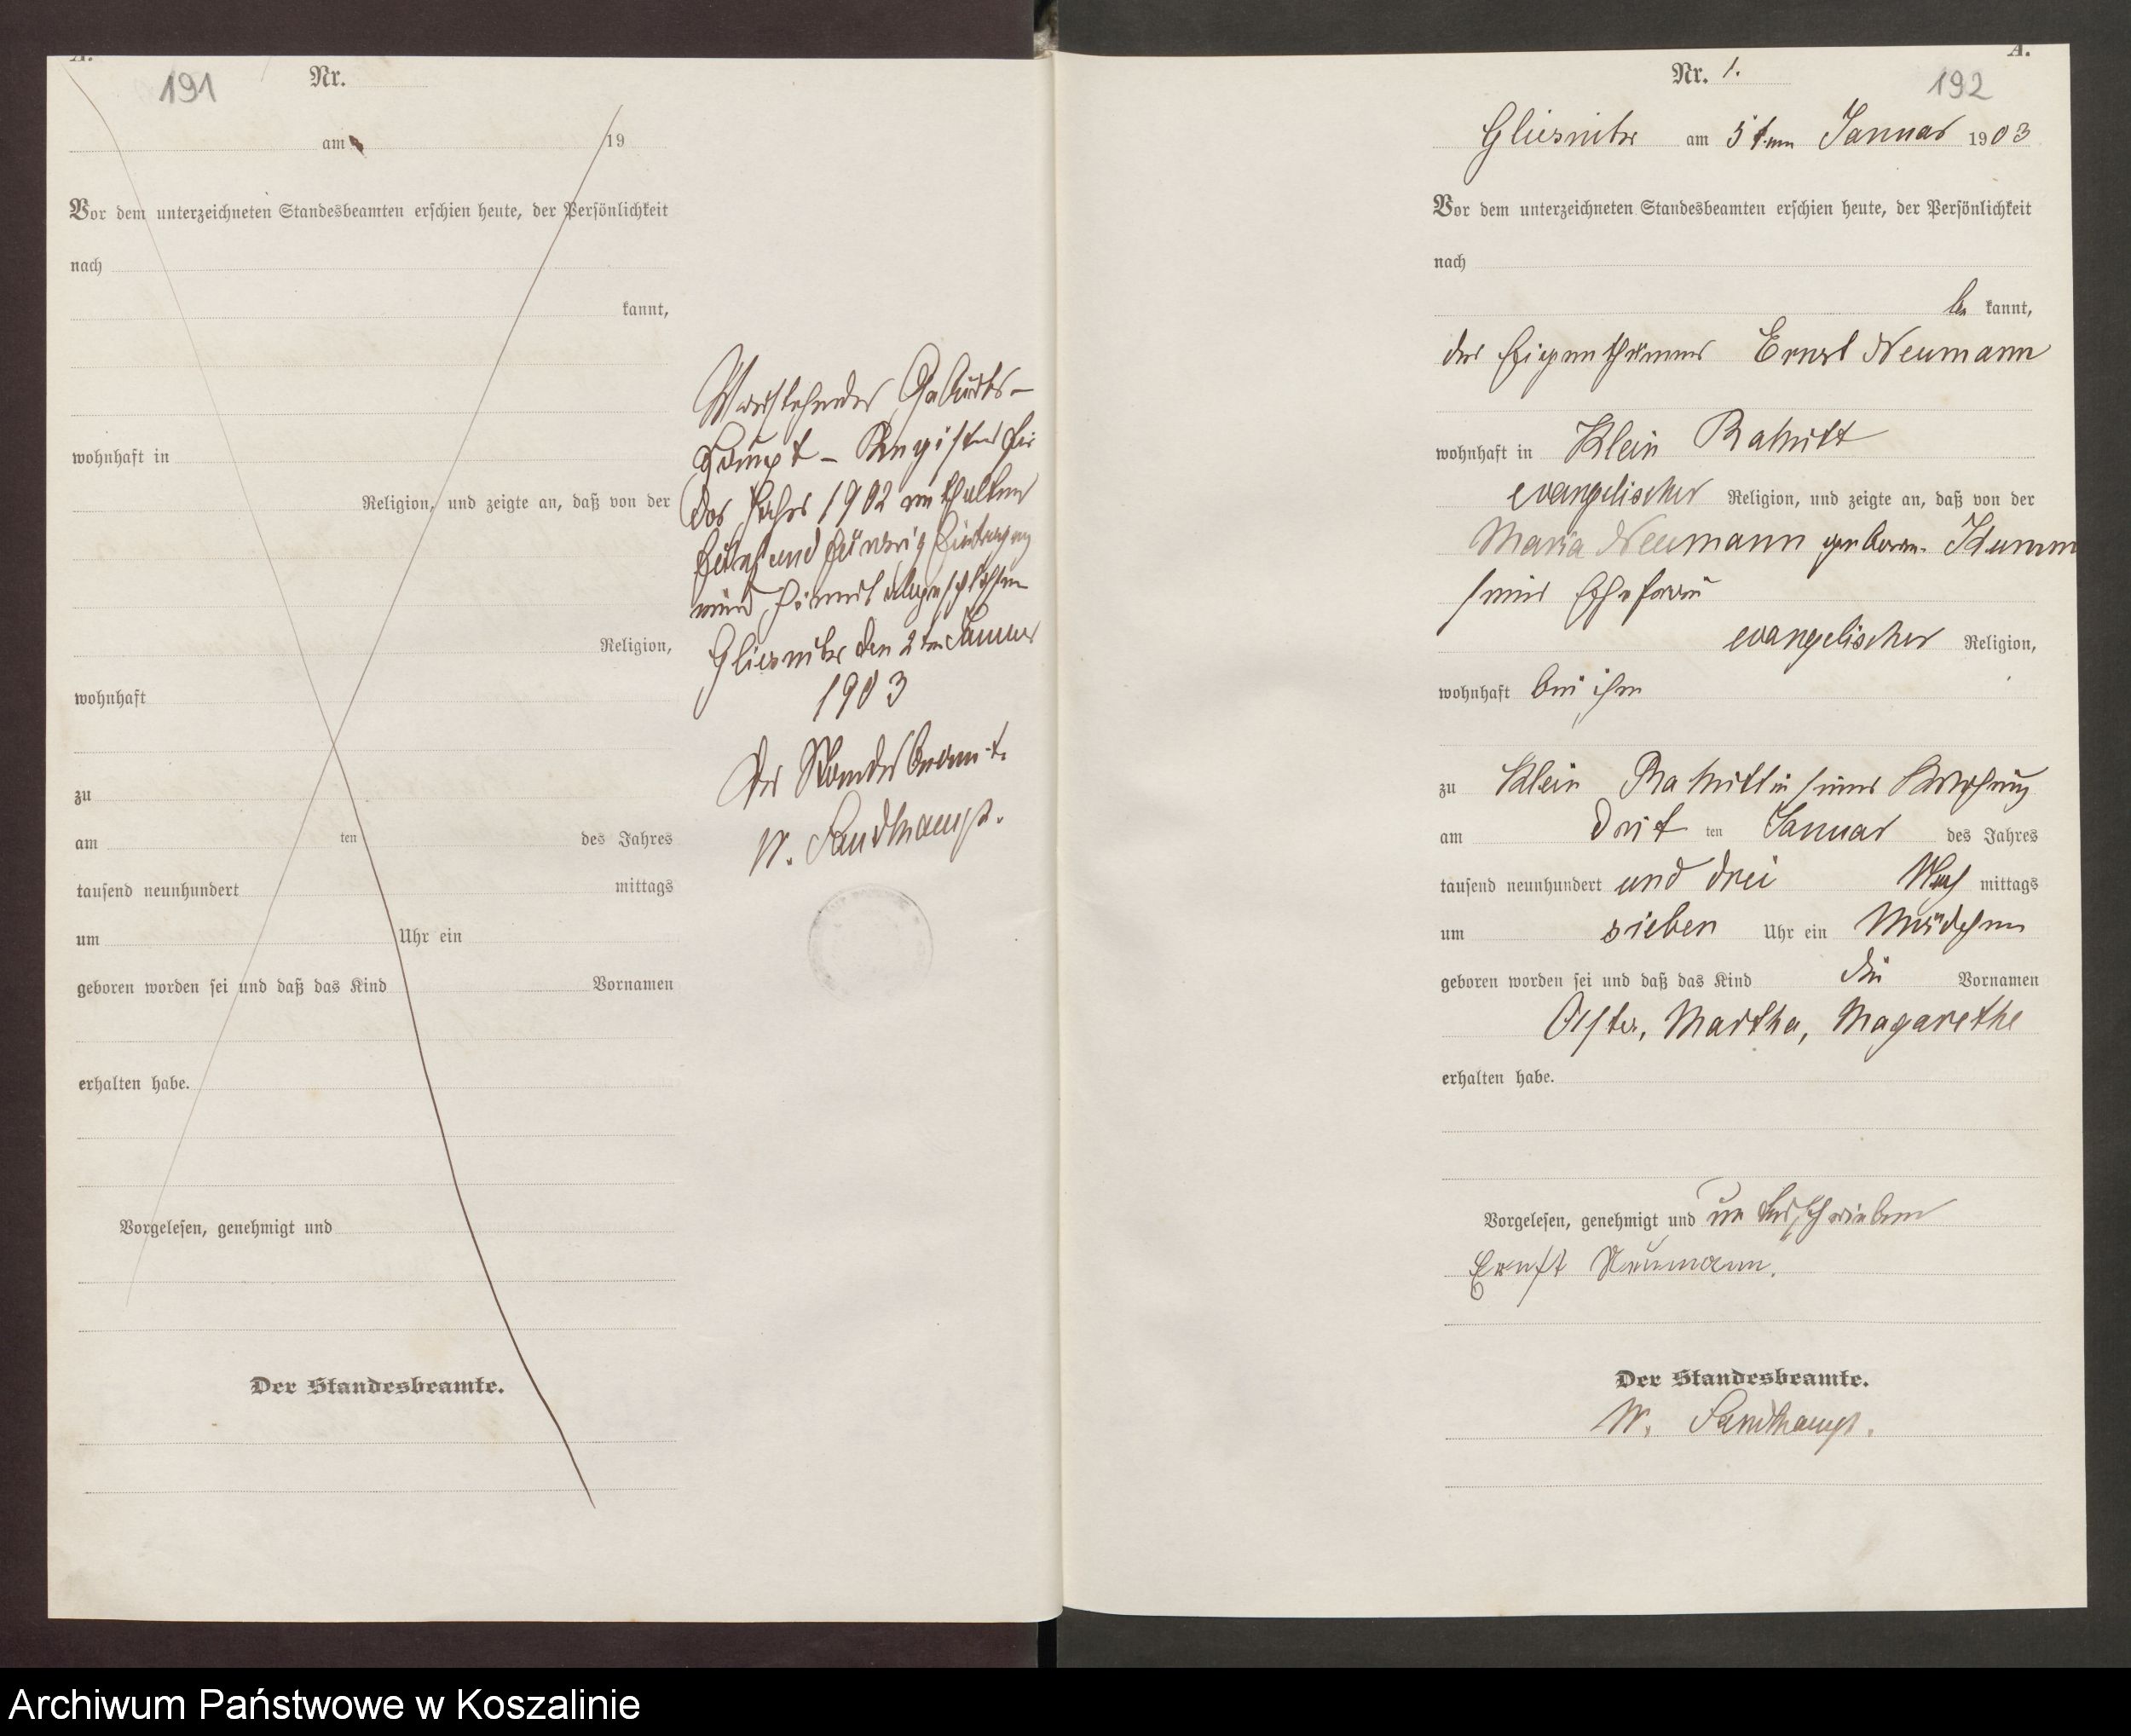 A.
191
Nr.
am 19
Vor dem unterzeichneten Standesbeamten erschien heute, der Persönlichkeit
nach
kannt,
wohnhaft in
Religion, und zeigte an, daß von der
Religion,
wohnhaft
zu
am ten des Jahres
tausend neunhundert mittags
um Uhr ein
geboren worden sei und daß das Kind Vornamen
erhalten habe.
Vorgelesen, genehmigt und
Der Standesbeamte.
Vorstehendes Geburts-
Haupt-Register für
das Jahr 1902 enthaltend
Eintragung
wird hiermit abgeschlossen
Gliesnitz den 2ten Januar
1903
Der Standesbeamte
W. Sandhaupt.
A.
Nr. 1.
192
Gliesnitz am 5ten Januar 1903
Vor dem unterzeichneten Standesbeamten erschien heute, der Persönlichkeit
nach
be kannt,
der Eigenthümer Ernst Neumann
wohnhaft in Klein
evangelischer Religion, und zeigte an, daß von der
Maria Neumann geboren.
seiner Ehefrau
evangelischer Religion,
wohnhaft bei ihm
zu Klein in seiner Wohnung
am drit ten Januar des Jahres
tausend neunhundert und drei Nach mittags
um sieben Uhr ein Mädchen
geboren worden sei und daß das Kind die Vornamen
Martha, Magarethe
erhalten habe.
Vorgelesen, genehmigt und unterschrieben
Ernst Neumann.
Der Standesbeamte.
W. Sandhaupt.
Archiwum Państwowe w Koszalinie